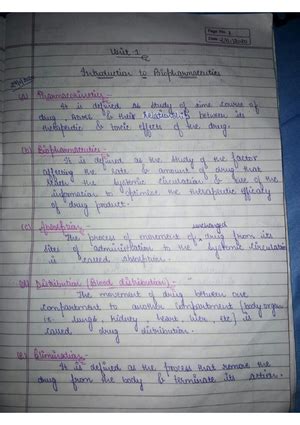 Page No. 1
Date
Unit-1
Introduction to Biopharmaceutics
(a) Pharmacokinetics:-
It is defined as study of time course of
drug, & their relationship between its
therapeutic & toxic effects of the drug.
(b) Biopharmaceutics:-
It is defined as the study of the factor
affecting the rate & amount of drug that
reach the systemic circulation & use of the
infomation to optimize the therapeutic efficacy
of drug product.
(c) Absorption:-
unchanged
The process of movement of drug from its
site of administration to the systemic circulation
is called absorption.
(d) Distribution (Blood distribution):-
The movement of drug between one
compartment to another compartment (body organ
is lungs, kidney heart, liver, etc) is
called drug distribution.
(e) Elimination:-
It is defined as the process that remove the
drug from the body & terminate its action.